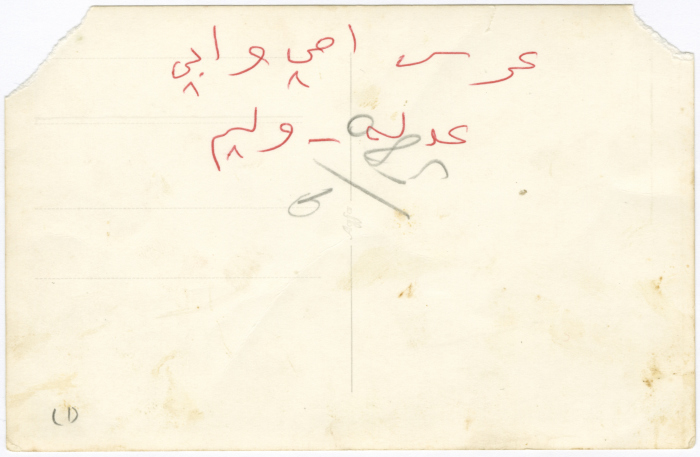 عرس امي وابي
عدله - وليم
(1)